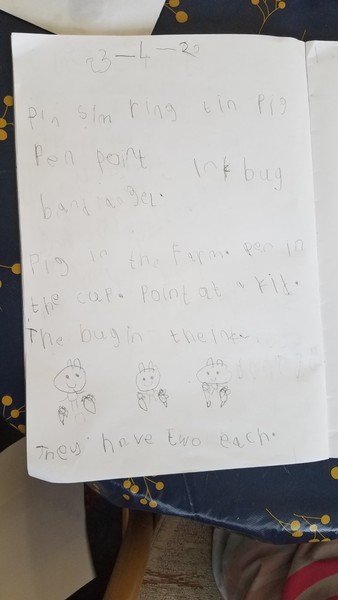 3-4-22
Pin sim ring tin pig
Pen point ink bug
Pig in the farm. pen in
the cup. Point at a kit.
The bug in the ink.
They have two each.